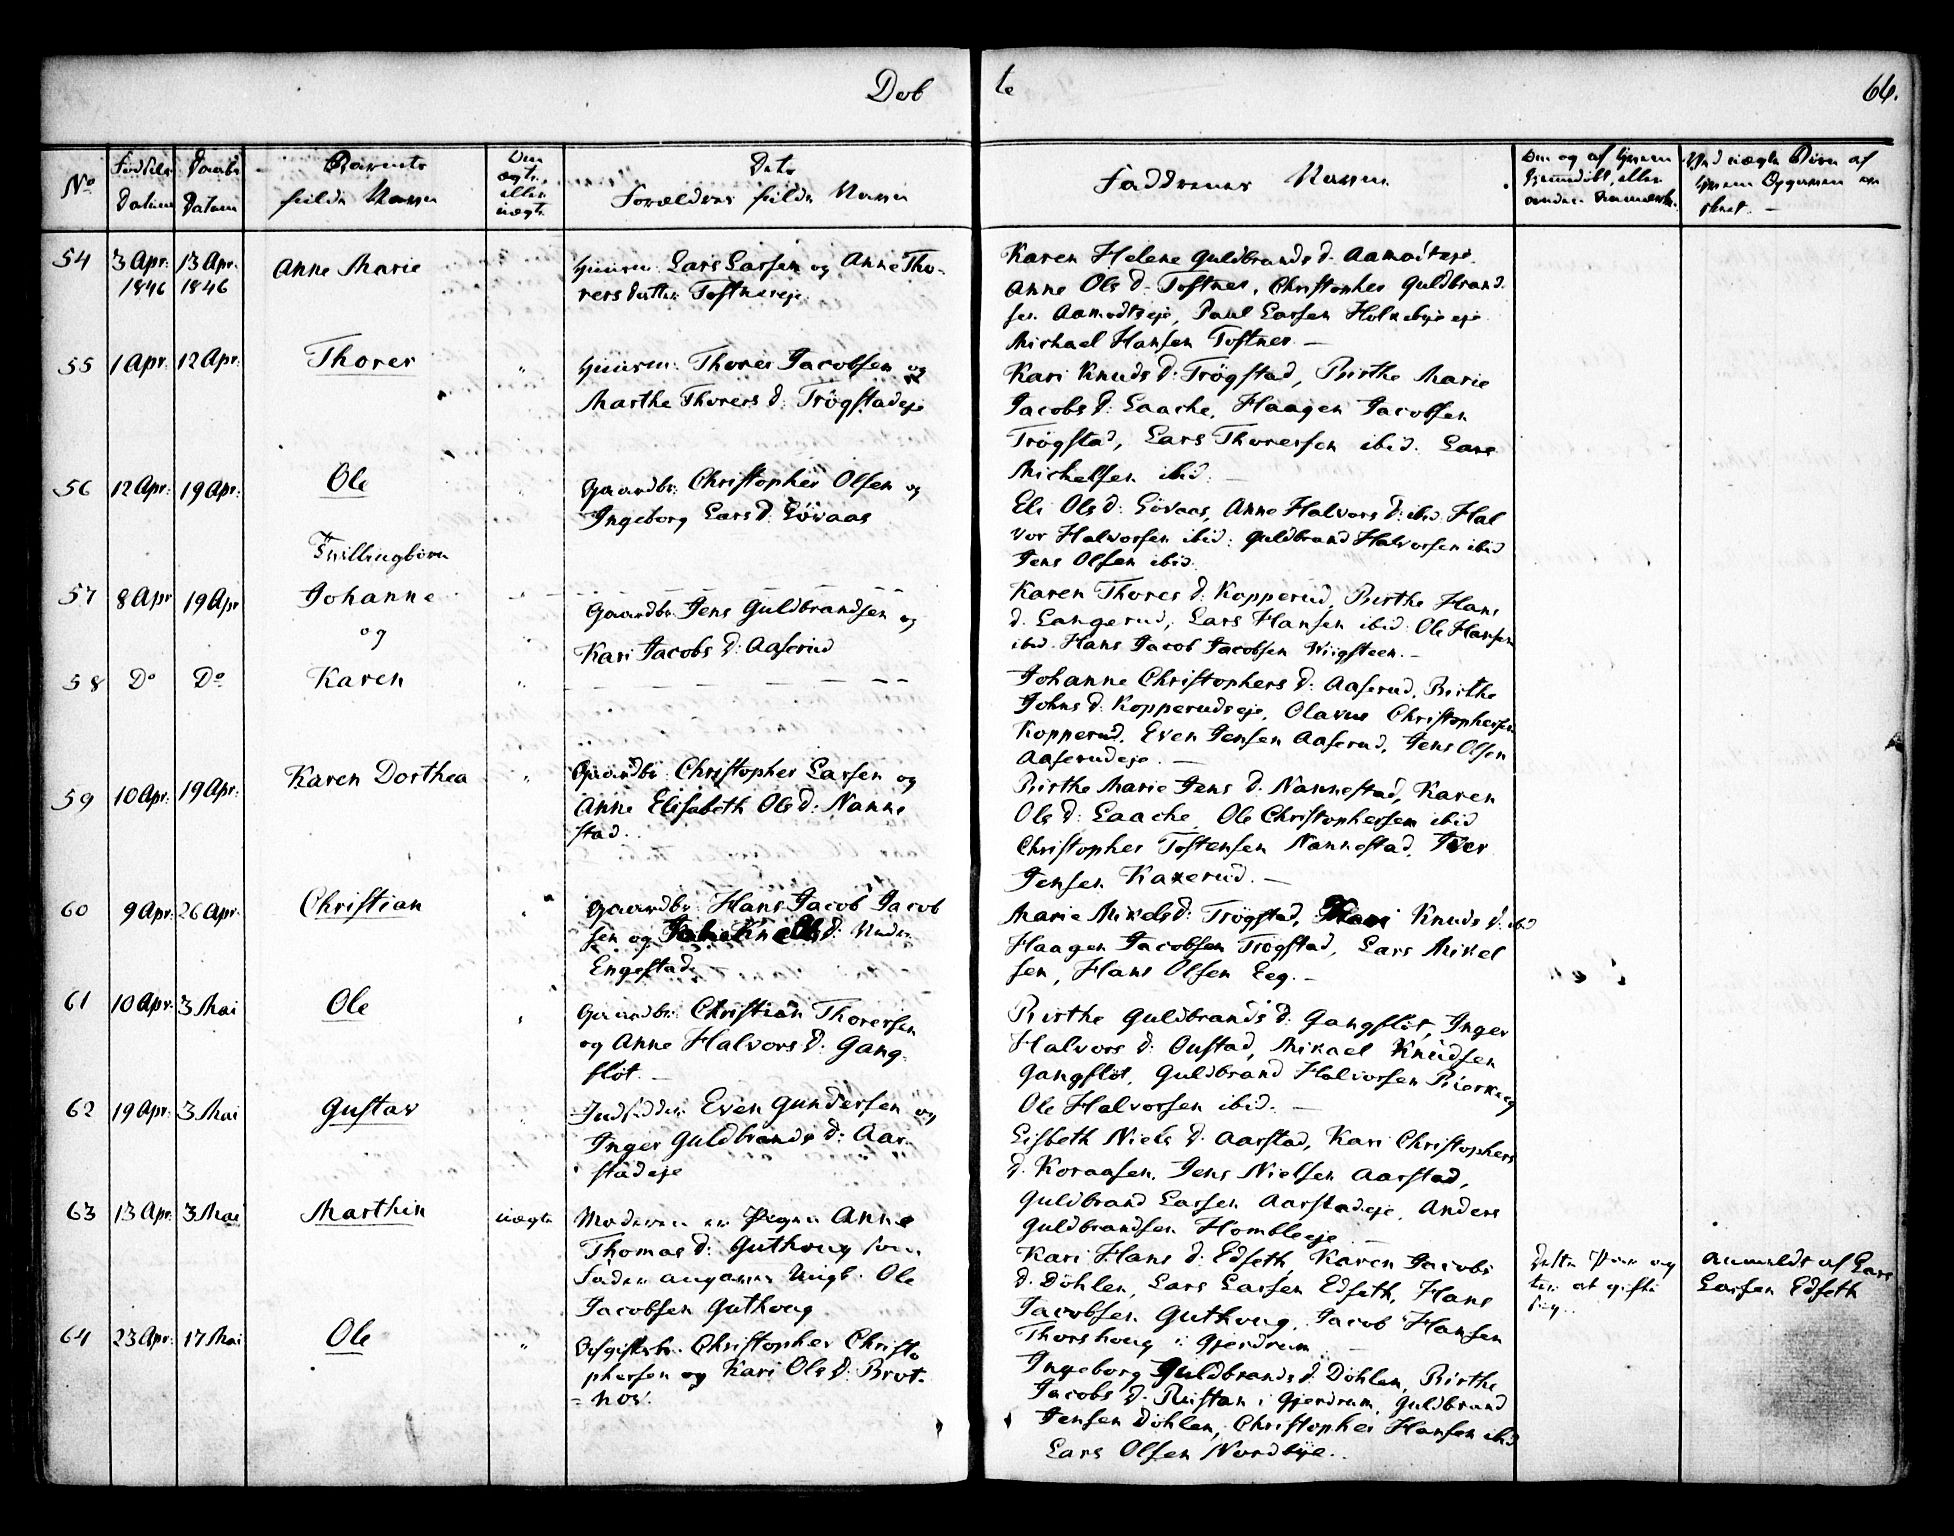 Døb
te
66.
No
Fødsels
Datum
Daabs
Datum
Barnets
fulde Navn
Om
ægte,
eller
uægte
Dets
Forældres fulde Navn
Faddrenes Navne
54 3 Apr. 13 Apr. Anne Marie
1846 1846
Huusm: Lars Larsen og Anne Tho-
rersdatter Toftnereje
Karen Helene Guldbrands d. Aamodteje.
Anne Ols d. Toftner, Christopher Guldbrand
sen Aamodtseje, Paul Larsen Holkebyeeje
Michael Hansen Toftner —
55 1 Apr. 12 Apr. Thorer "
Huusm: Thorer Jacobsen og
Marthe Thorers d: Trøgstadeje
Kari Knuds d: Trøgstad, Birthe Marie
Jacobs d: Laache, Haagen Jacobsen
Trøgstad, Lars Thorersen ibid. Lars
Michelsen ibid. —
56 12 Apr. 19 Apr. Ole
Gaardbr: Christopher Olsen og
Ingeborg Lars d: Løvaas
Eli Ols d: Løvaas, Anne Halvors d: ibid. Hal
vor Halvorsen ibid: Guldbrand Halvorsen ibid
Jens Olsen ibid.
Tvillingbørn
57 8 Apr 19 Apr Johanne
og
Gaardbr. Jens Guldbrandsen og
Kari Jacobs d: Aaserud
Karen Thores d: Kopperud, Birthe Hans
d. Langerud, Lars Hansen ibid. Ole Hansen
ibid. Hans Jacob Jacobsen Wiigsteen. —
58 Do Do Karen
Johanne Christophers d: Aaserud, Birthe
Johns d: Kopperudseje, Olavus Christophersen
Kopperud. Even Jensen Aaserud, Jens Olsen
Aaserudeje. —
59 10 Apr. 19 Apr. Karen Dorthea "
Gaardbr: Christopher Larsen og
Anne Elisabeth Ols d: Nanne
stad.
Birthe Marie Jens d: Nannestad, Karen
Ols d: Laache, Ole Christophersen ibid
Christopher Tostensen Nannestad. Iver
Jensen Kaxerud. —
60 9 Apr. 26 Apr. Christian
Gaardbr: Hans Jacob Jacob
sen og Ols d: Nedre
Engestad —
Marie Mikels d: Trøgstad, Kari Knuds d: ibid
Haagen Jacobsen Trøgstad, Lars Mikel
sen, Hans Olsen Eeg. —
61 10 Apr. 3 Mai Ole
Gaardbr: Christian Thorersen
og Anne Halvors d: Gang-
fløt. —
Birthe Guldbrands d: Gangfløt, Inger
Halvors d: Oustad, Mikael Knudsen
Gangfløt, Guldbrand Halvorsen Bierkeeg
Ole Halvorsen ibid. —
62 19 Apr. 3 Mai Gustav
Indsidder Even Gundersen og
Inger Guldbrands d: Aar
stadeje
Lisbeth Niels d: Aarstad, Kari Christophers
d. Koraasen. Jens Nielsen Aarstad,
Guldbrand Larsen Aarstadeje, Anders
Guldbrandsen Hombleeje —
63 13 Apr. 3 Mai Marthin uægte
Moderen er Pigen Anne
Thomas d: Guthoug som
Fader angaves Ungk. Ole
Jacobsen Guthoug
Kari Hans d: Edseth, Karen Jacobs
d. Döhlen, Lars Larsen Edseth, Hans
Jacobsen Guthoug, Jacob Hansen
Thorshoug i Gjerdrum —
Dette Par ag
ter at gifte
sig.
Anmeldt af Lars
Larsen Edseth
64 23 Apr. 17 Mai Ole "
Christopher Christo
phersen og Kari Ols d: Brot-
Ingeborg Guldbrands d: Döhlen, Birthe
Jacobs d: Rustan i Gjerdrum, Guldbrand
Jensen Döhlen, Christopher Hansen ibid
Lars Olsen Nordbye.